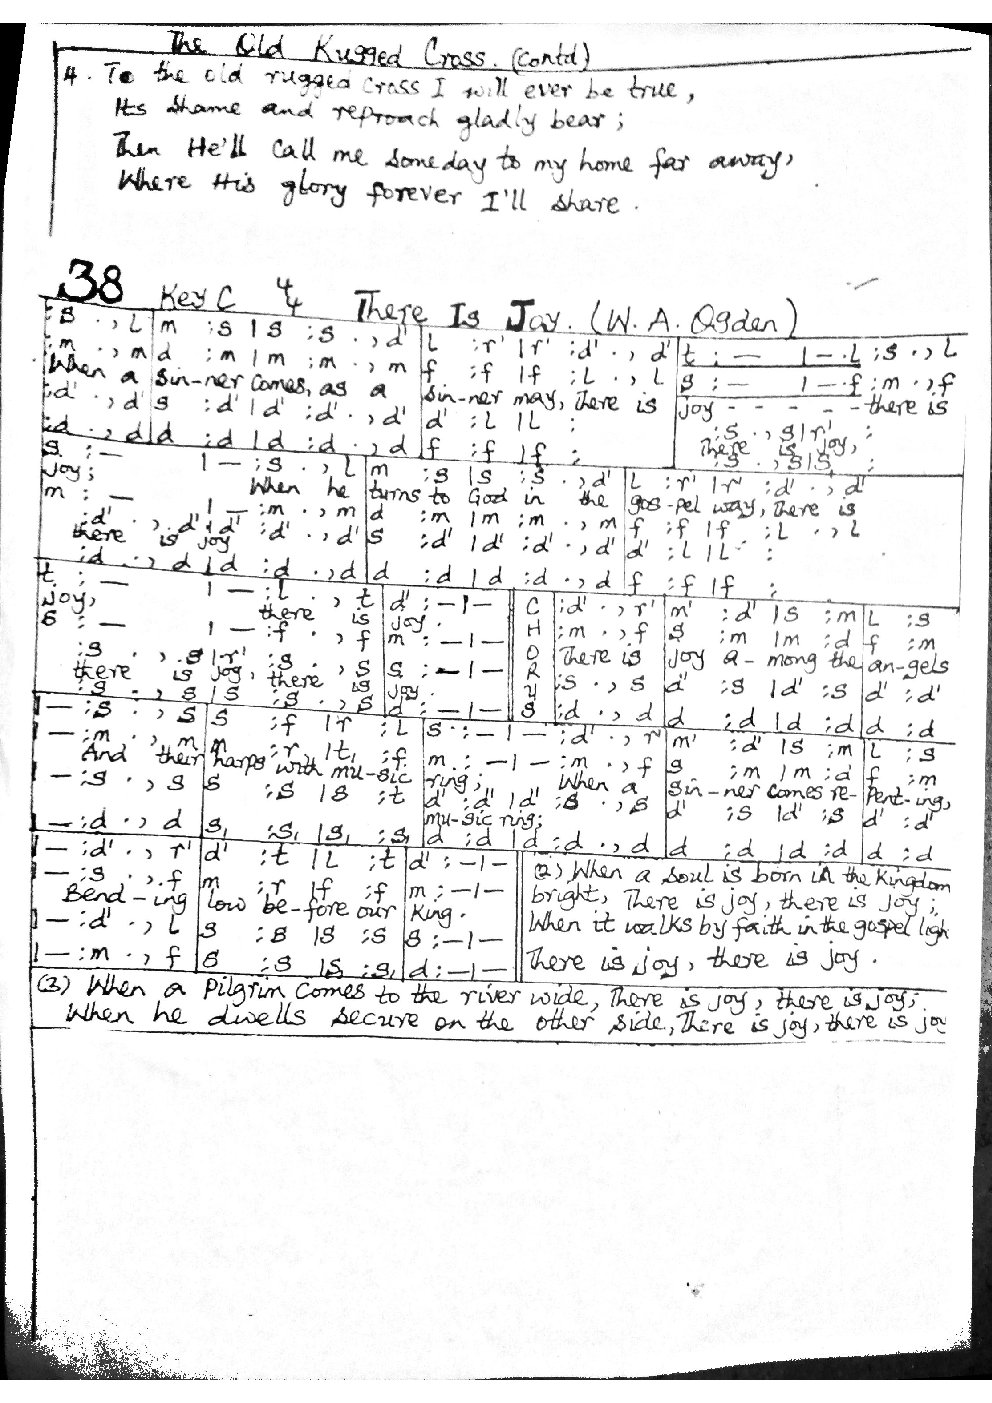 The Old Rugged Cross. (Contd)
4. To the old rugged Cross I will ever be true,
Its shame and reproach gladly bear;
Then He'll call me someday to my home far away,
Where His glory forever I'll share.
38 Key C 4/4 There Is Joy. (W. A. Ogden)
:s ., L | m :s | s :s ., d' | L :r' | r' :d' ., d' | t :— | — . L :s ., L
:m ., m | d :m | m :m ., m | f :f | f :L ., L | s :— | — . f :m ., f
When a sin-ner comes, as a sin-ner may, There is joy - - - - - there is
:d' ., d' | s :d' | d' :d' ., d' | d' :L | L : | :s ., s | r' :
There is joy,
:d ., d | d :d | d :d ., d | f :f | f : | :s ., s | s :
s :— | — :s ., L | m :s | s :s ., d' | L :r' | r' :d' ., d'
Joy; When he turns to God in the gos-pel way, There is
m :— | — :m ., m | d :m | m :m ., m | f :f | f :L ., L
:d' ., d' | d' :d' ., d' | s :d' | d' :d' ., d' | d' :L | L :
there is joy
:d ., d | d :d ., d | d :d | d :d ., d | f :f | f :
t :— | — :L ., t | d' :— | — | CHORUS | :d' ., r' | m' :d' | s :m | L :s
Joy, there is joy.
s :— | — :f ., f | m :— | — | :m ., f | s :m | m :d | f :m
There is joy a-mong the an-gels
:s ., s | r' :s ., s | s :— | — | :s ., s | d' :s | d' :s | d' :d'
there is joy, there is joy
:s ., s | s :s ., s | d :— | — | :d ., d | d :d | d :d | d :d
| — :s ., s | s :f | r :L | s :— | — :d' ., r' | m' :d' | s :m | L :s
| — :m ., m | m :r | t, :f | m :— | — :m ., f | s :m | m :d | f :m
And their harps with mu-sic ring; When a sin-ner comes re-pent-ing,
| — :s ., s | s :s | s :t | d' :d' | d' :s ., s | d' :s | d' :s | d' :d'
mu-sic ring;
| — :d ., d | s, :s, | s, :s, | d :d | d :d ., d | d :d | d :d | d :d
| — :d' ., r' | d' :t | L :t | d' :— | —
| — :s ., f | m :r | f :f | m :— | —
Bend-ing low be-fore our King.
| — :d' ., L | s :s | s :s | s :— | —
| — :m ., f | s :s | s :s, | d :— | —
(2) When a soul is born in the Kingdom
bright, There is joy, there is joy;
When it walks by faith in the gospel ligh
There is joy, there is joy.
(3) When a Pilgrim comes to the river wide, There is joy, there is joy;
When he dwells secure on the other side, There is joy, there is joy